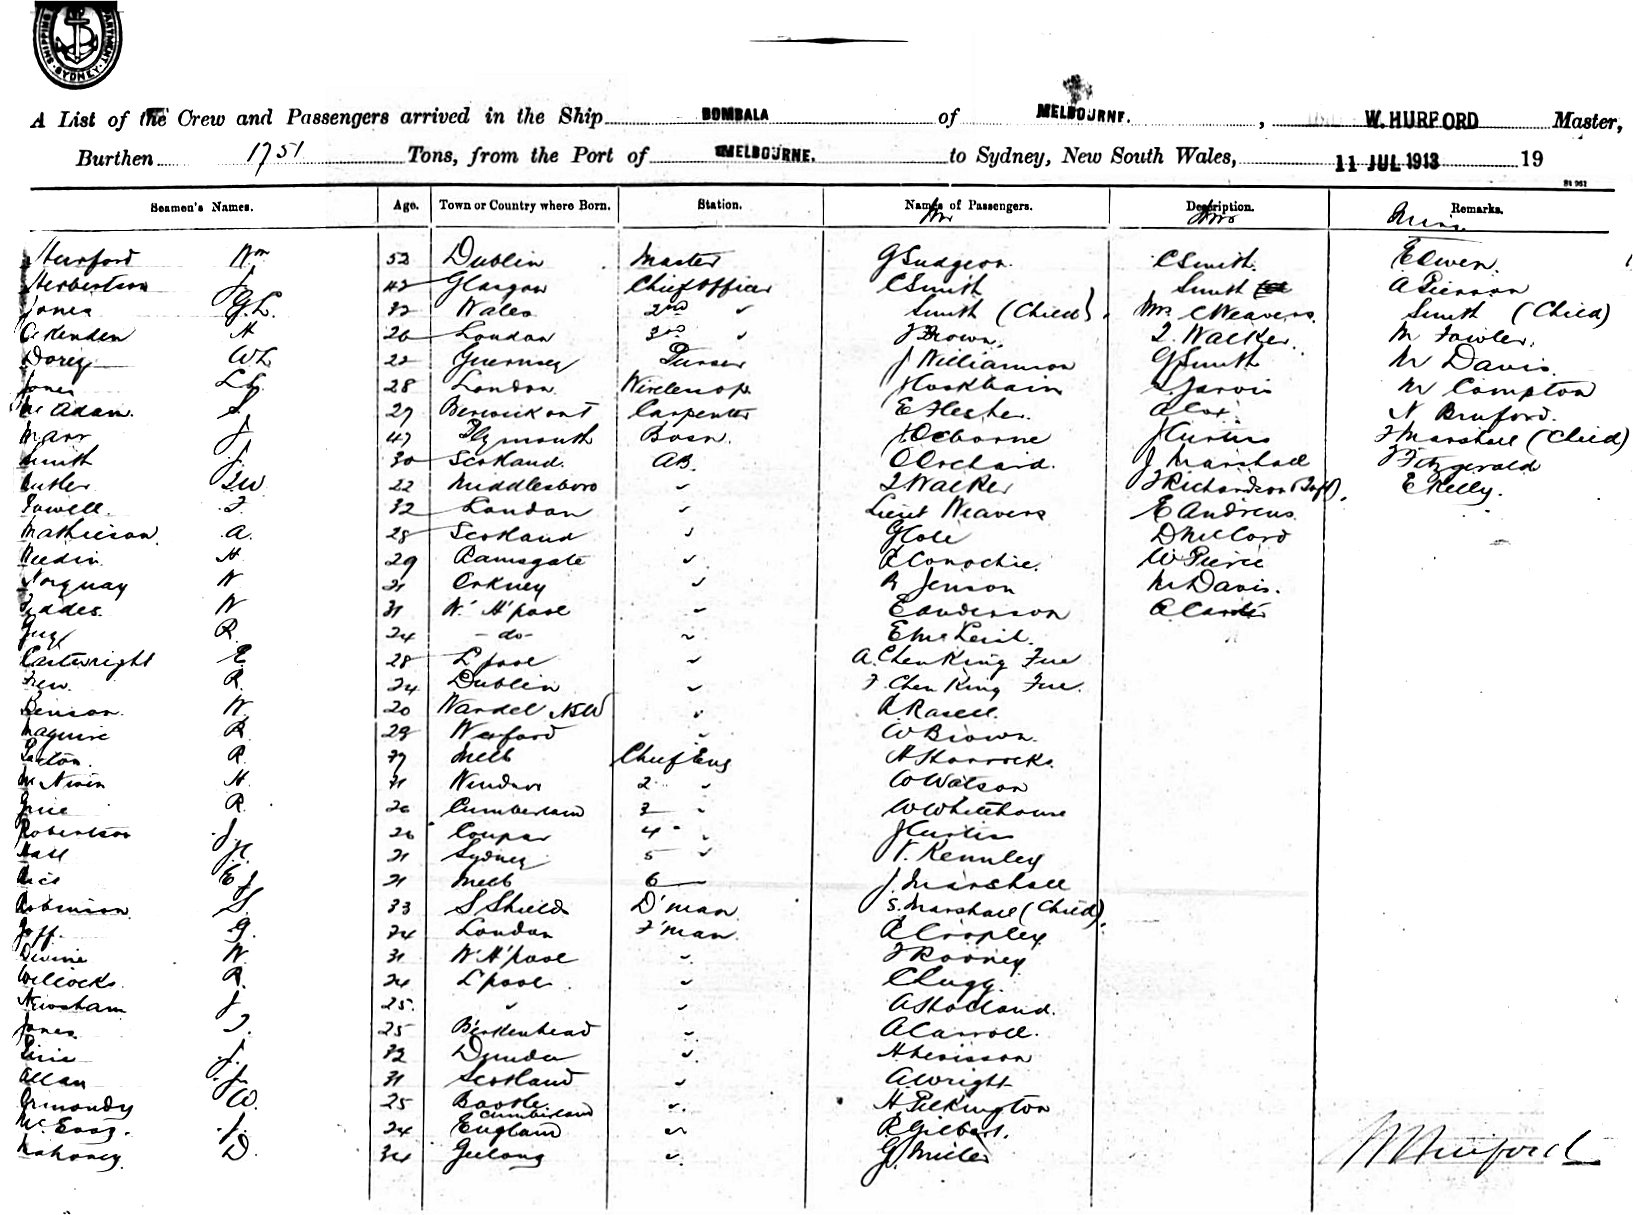 SHIPPING DEPARTMENT SYDNEY
A List of the Crew and Passengers arrived in the Ship BOMBALA of MELBOURNE. , W. HURFORD Master,
Burthen 1751 Tons, from the Port of MELBOURNE. to Sydney, New South Wales, 11 JUL 1913 19
Seamen's Names. Age. Town or Country where Born. Station. Names of Passengers. Description. Remarks.
Mr Mrs Miss
Hurford Wm 52 Dublin Master G Sudgeon C Smith. E Owen.
Herbertson J 42 Glasgow Chief Officer C Smith Smith A Pierson
Jones G.L. 32 Wales 2nd " Smith (Child) Mrs C Weavers Smith (Child)
H 26 London 3rd " Brown. Walker. M Fowler.
Dorey WL 22 Guernsey Purser J Williamson G Smith M Davis.
Jones 28 London Wireless op. Jarvis M Compton
McAdam. 27 Carpenter E Flesher. A Cox N Bruford.
Marr J 47 Plymouth Bosn. Osborne J Curtis F Marshall (Child)
Smith J. 30 Scotland. AB. Orchard. J Marshall Fitzgerald
Butler 22 Middlesboro " Walker Richardson E Kelly.
Powell 32 London " Lieut Weavers E Andrews.
Mathieson A. 28 Scotland " G Cole D McCord
H 29 Ramsgate " Conochie. W Pierce
Norquay W 21 Orkney " Jenson M Davis.
Fiddes W 31 W. H'pool " E Anderson A Carter
R. 24 - do - " E McLeish.
Cartwright E 28 L'pool " A. Chen King Fue
Frew. R. 24 Dublin " F. Chen King Fue.
Benson. W. 20 NSW "
Maguire R. 29 Wexford " W Brown.
Paxton. R. Melb Chief Eng H Shorrocks.
McNiven H. 31 Windsor 2 " W Watson
R. 26 Cumberland 3 " W Whitehouse
Robertson J. 26 Coupar 4 " J Curtis
Hall 21 Sydney 5 " Kennley
Rice E J 21 Melb 6 J. Marshall
Robinson 33 S Shields D'man S. Marshall (Child).
G. 24 London F'man. Cropley
Devine W. 31 W. H'pool " Rooney
Wilcocks. R. 24 L'pool. " C Lugg.
Newsham J 25. " " A Holland.
Jones. 25 Birkenhead " A Carroll.
J. 32 Dundee " H Levisson
Allan J. 31 Scotland " A Wright
Ormondy W. 25 Bootle Cumberland " H Pilkington
J. 24 England " R Gilbert.
Mahoney D. 34 Geelong " G. Miller
W Hurford